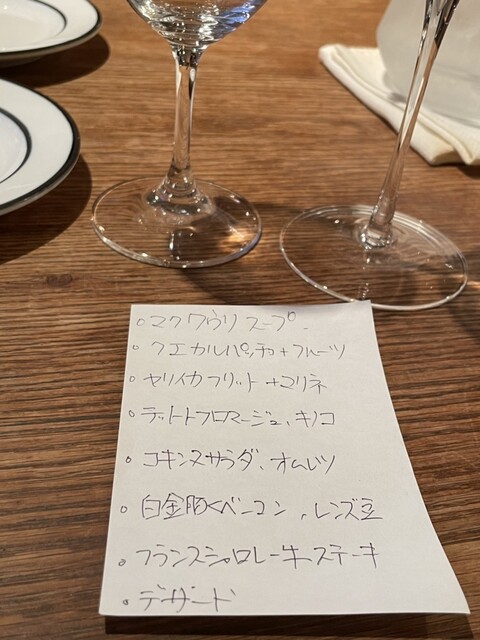 ○マクワウリスープ.
○クエカルパッチョ+フルーツ
○ヤリイカフリット+マリネ
○テットトフロマージュ、キノコ
○コキンヌサラダ、オムレツ
○白金豚くベーコン、レンズ豆
○フランスシャロレー牛ステーキ
○デザード